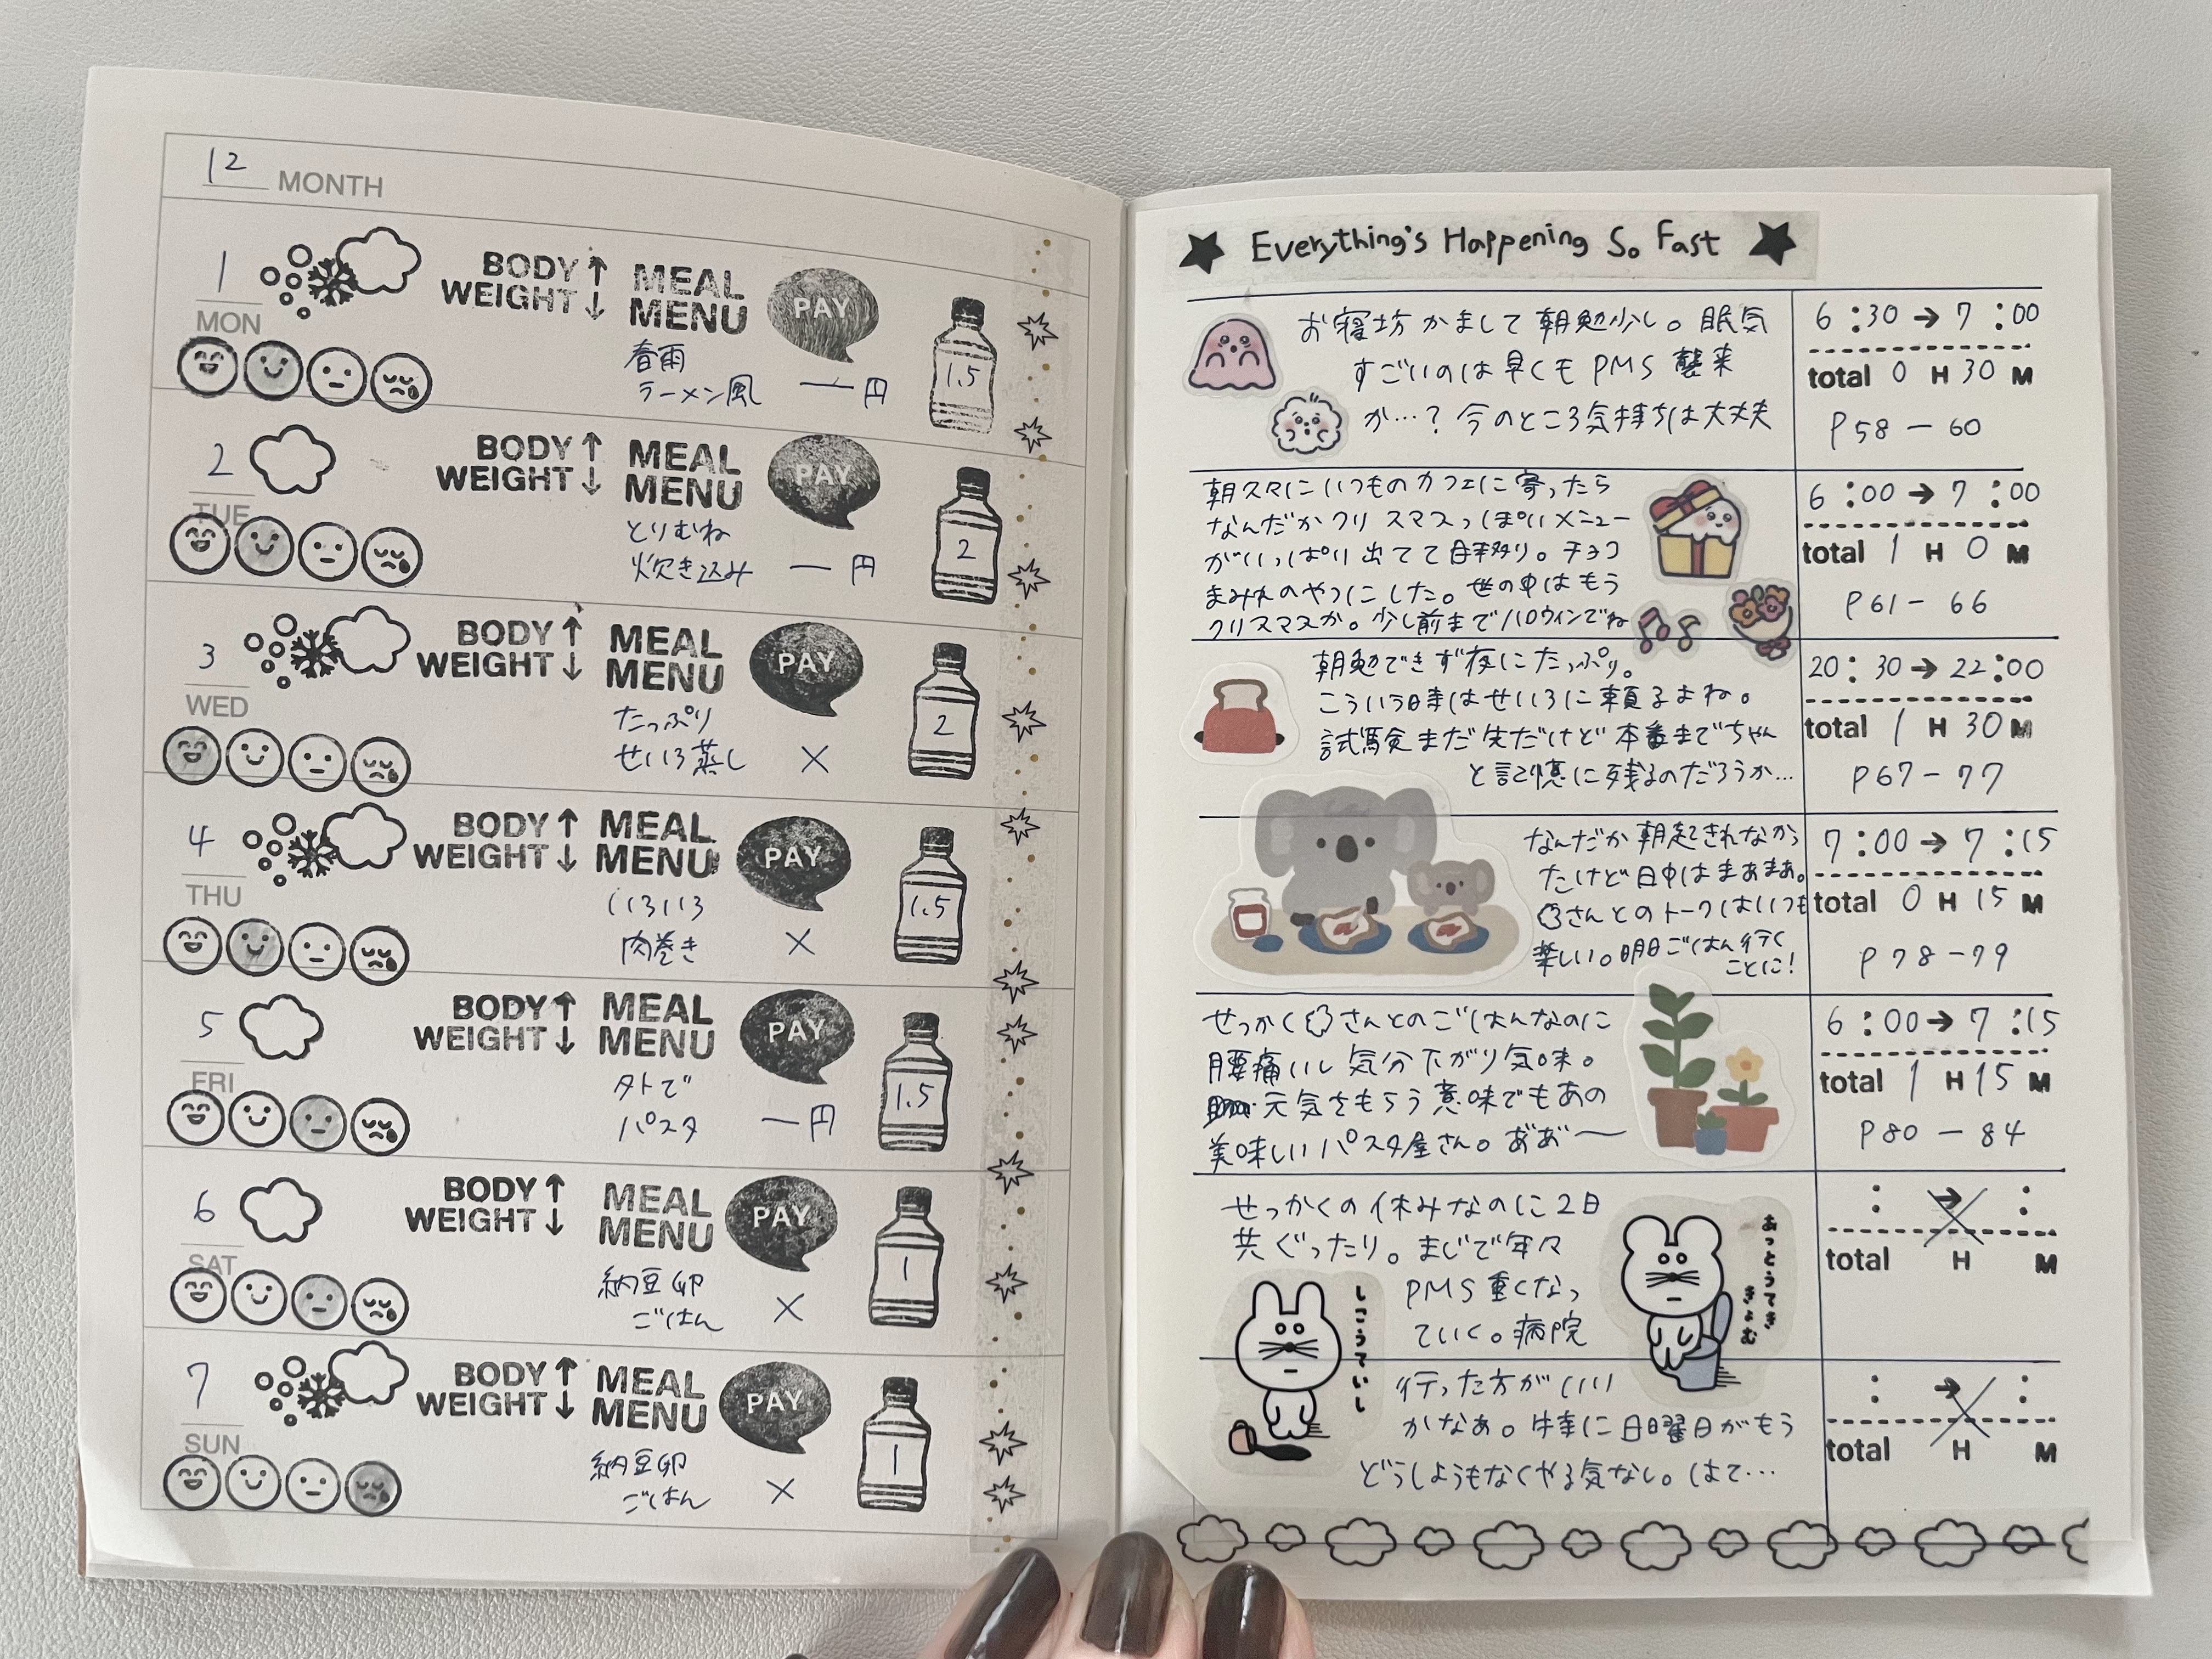 12 MONTH
1
MON
BODY↑
WEIGHT↓
MEAL
MENU
春雨
ラーメン風
PAY
—円
1.5
2
TUE
BODY↑
WEIGHT↓
MEAL
MENU
とりむね
炊き込み
PAY
—円
2
3
WED
BODY↑
WEIGHT↓
MEAL
MENU
たっぷり
せいろ蒸し
PAY
×
2
4
THU
BODY↑
WEIGHT↓
MEAL
MENU
いろいろ
肉巻き
PAY
×
1.5
5
FRI
BODY↑
WEIGHT↓
MEAL
MENU
外で
パスタ
PAY
—円
1.5
6
SAT
BODY↑
WEIGHT↓
MEAL
MENU
納豆卵
ごはん
PAY
×
1
7
SUN
BODY↑
WEIGHT↓
MEAL
MENU
納豆卵
ごはん
PAY
×
1
★ Everything's Happening So Fast ★
お寝坊かまして朝勉少し。眠気
すごいのは早くもPMS襲来
か…?今のところ気持ちは大丈夫
6:30→7:00
total 0 H 30 M
P58 — 60
朝久々にいつものカフェに寄ったら
なんだかクリスマスっぽいメニュー
がいっぱい出てて。チョコ
まみれのやつにした。世の中はもう
クリスマスか。少し前までハロウィンでね
6:00→7:00
total 1 H 0 M
P61 — 66
朝勉できず夜にたっぷり。
こういう時はせいろに頼るよね。
試験まだ先だけど本番までちゃん
と記憶に残るのだろうか…
20:30→22:00
total 1 H 30 M
P67 — 77
なんだか朝起きれなかっ
たけど日中はまあまあ。
さんとのトークはいつも
楽しい。明日ごはん行く
ことに!
7:00→7:15
total 0 H 15 M
P78 — 79
せっかくさんとのごはんなのに
腰痛いし気分下がり気味。
元気をもらう意味でもあの
美味しいパスタ屋さん。あぁ〜
6:00→7:15
total 1 H 15 M
P80 — 84
せっかくの休みなのに2日
共ぐったり。まじで年々
PMS重くなっ
ていく。病院
行った方がいい
かなぁ。特に日曜日がもう
どうしようもなくやる気なし。はて…
しこうていし
あっとうてき
きょむ
: → :
total H M
: → :
total H M